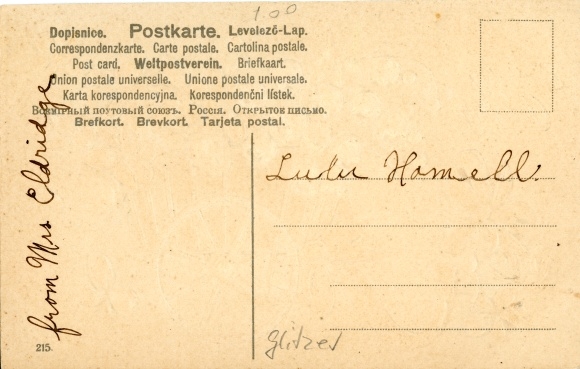 100
Dopisnice. Postkarte. Levelező-Lap.
Correspondenzkarte. Carte postale. Cartolina postale.
Post card. Weltpostverein. Briefkaart.
Union postale universelle. Unione postale universale.
Karta korespondencyjna. Korespondenční lístek.
Всемірный почтовый союзъ. Россія. Открытое письмо.
Brefkort. Brevkort. Tarjeta postal.
from Mrs Eldridge
Hamell.
215.
Glitzer